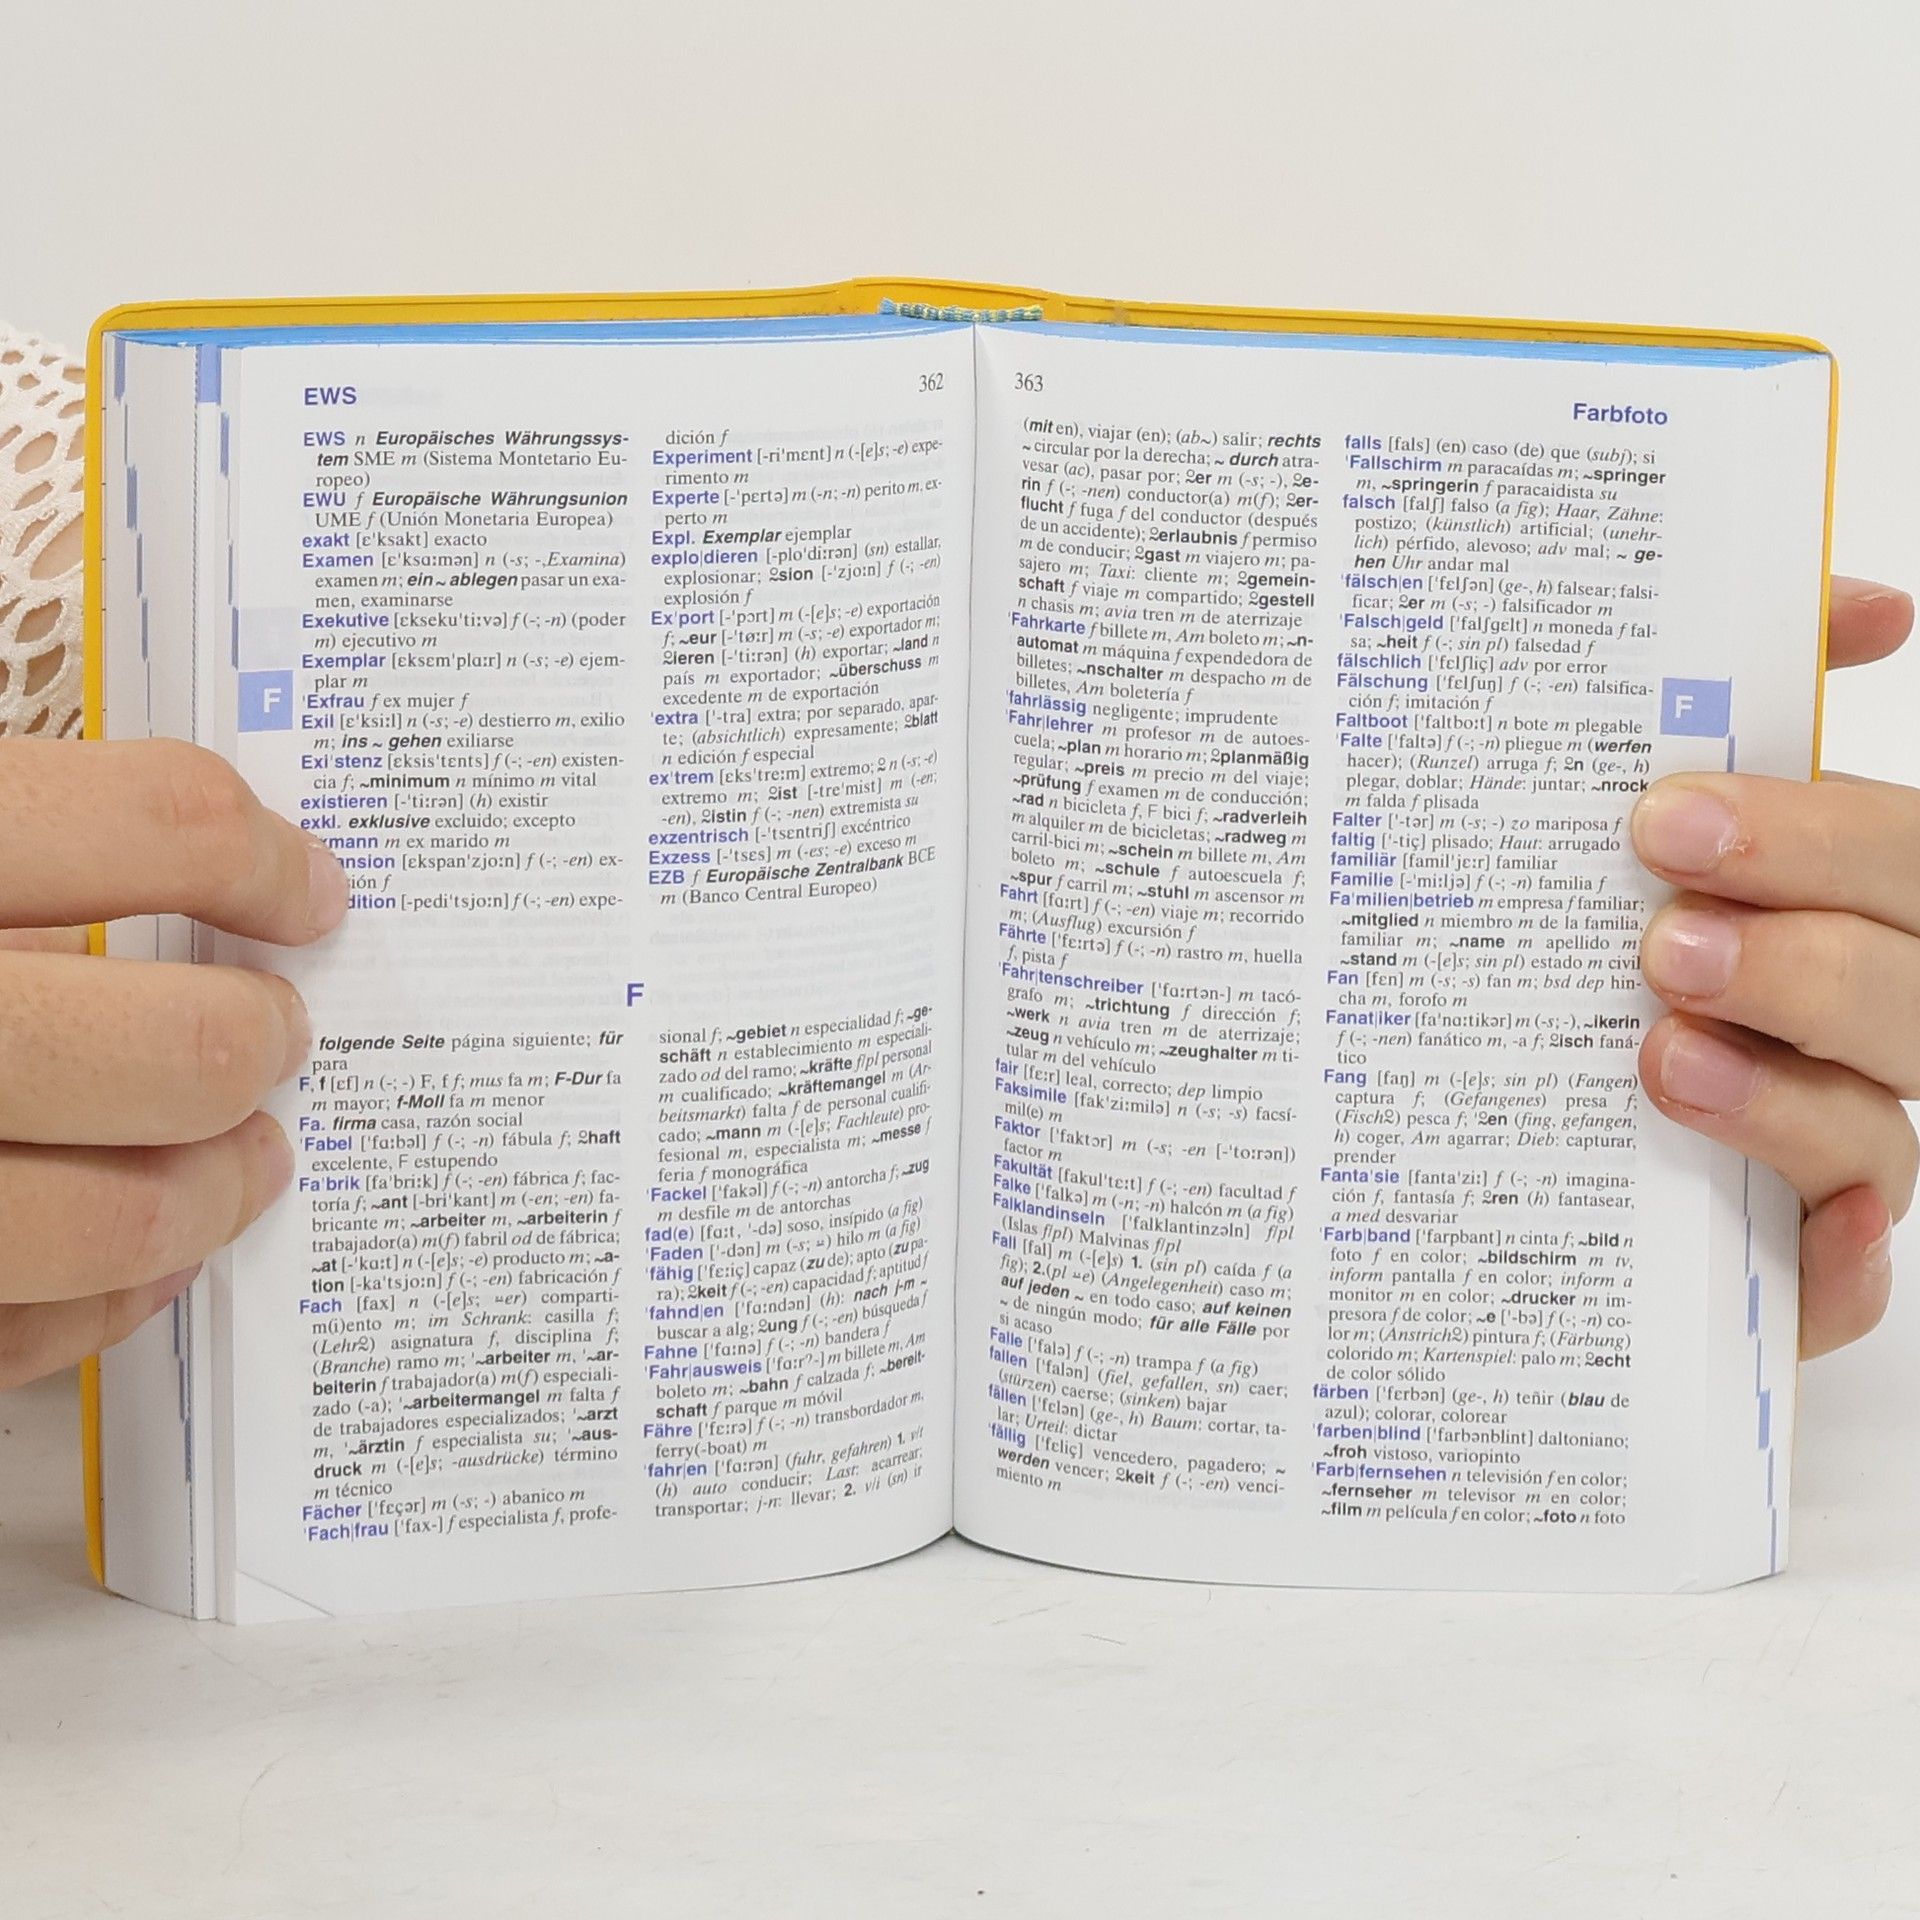 EWS
362
EWS n Europäisches Währungssys-
tem SME m (Sistema Montetario Eu-
ropeo)
EWU f Europäische Währungsunion
UME f (Unión Monetaria Europea)
exakt [ɛˈksakt] exacto
Examen [ɛˈksɑːmən] n (-s; -,Examina)
examen m; ein ~ ablegen pasar un exa-
men, examinarse
Exekutive [ɛksekuˈtiːvə] f (-; -n) (poder
m) ejecutivo m
Exemplar [ɛksɛmˈplɑːr] n (-s; -e) ejem-
plar m
ˈExfrau f ex mujer f
Exil [ɛˈksiːl] n (-s; -e) destierro m, exilio
m; ins ~ gehen exiliarse
Exiˈstenz [ɛksisˈtɛnts] f (-; -en) existen-
cia f; ~minimum n mínimo m vital
existieren [-ˈtiːrən] (h) existir
exkl. exklusive excluido; excepto
mann m ex marido m
ansion [ɛkspanˈzjoːn] f (-; -en) ex-
sión f
dition [-pediˈtsjoːn] f (-; -en) expe-
dición f
Experiment [-riˈmɛnt] n (-[e]s; -e) expe-
rimento m
Experte [-ˈpɛrtə] m (-n; -n) perito m, ex-
perto m
Expl. Exemplar ejemplar
explo|dieren [-ploˈdiːrən] (sn) estallar,
explosionar; ≗sion [-ˈzjoːn] f (-; -en)
explosión f
Exˈport [-ˈpɔrt] m (-[e]s; -e) exportación
f; ~eur [-ˈtøːr] m (-s; -e) exportador m;
≗ieren [-ˈtiːrən] (h) exportar; ~land n
país m exportador; ~überschuss m
excedente m de exportación
ˈextra [ˈ-tra] extra; por separado, apar-
te; (absichtlich) expresamente; ≗blatt
n edición f especial
exˈtrem [ɛksˈtreːm] extremo; ≗ n (-s; -e)
extremo m; ≗ist [-treˈmist] m (-en;
-en), ≗istin f (-; -nen) extremista su
exzentrisch [-ˈtsɛntriʃ] excéntrico
Exzess [-ˈtsɛs] m (-es; -e) exceso m
EZB f Europäische Zentralbank BCE
m (Banco Central Europeo)
F
F
folgende Seite página siguiente; für
para
F, f [ɛf] n (-; -) F, f f; mus fa m; F-Dur fa
m mayor; f-Moll fa m menor
Fa. firma casa, razón social
ˈFabel [ˈfɑːbəl] f (-; -n) fábula f; ≗haft
excelente, F estupendo
Faˈbrik [faˈbriːk] f (-; -en) fábrica f; fac-
toría f; ~ant [-briˈkant] m (-en; -en) fa-
bricante m; ~arbeiter m, ~arbeiterin f
trabajador(a) m(f) fabril od de fábrica;
~at [-ˈkɑːt] n (-[e]s; -e) producto m; ~a-
tion [-kaˈtsjoːn] f (-; -en) fabricación f
Fach [fax] n (-[e]s; ⸚er) comparti-
m(i)ento m; im Schrank: casilla f;
(Lehr≗) asignatura f, disciplina f;
(Branche) ramo m; ˈ~arbeiter m, ˈ~ar-
beiterin f trabajador(a) m(f) especiali-
zado (-a); ˈ~arbeitermangel m falta f
de trabajadores especializados; ˈ~arzt
m, ˈ~ärztin f especialista su; ˈ~aus-
druck m (-[e]s; -ausdrücke) término
m técnico
Fächer [ˈfɛçər] m (-s; -) abanico m
ˈFach|frau [ˈfax-] f especialista f, profe-
sional f; ~gebiet n especialidad f; ~ge-
schäft n establecimiento m especiali-
zado od del ramo; ~kräfte f/pl personal
m cualificado; ~kräftemangel m (Ar-
beitsmarkt) falta f de personal cualifi-
cado; ~mann m (-[e]s; Fachleute) pro-
fesional m, especialista m; ~messe f
feria f monográfica
ˈFackel [ˈfakəl] f (-; -n) antorcha f; ~zug
m desfile m de antorchas
fad(e) [fɑːt, ˈ-də] soso, insípido (a fig)
ˈFaden [ˈ-dən] m (-s; ⸚) hilo m (a fig)
ˈfähig [ˈfɛːiç] capaz (zu de); apto (zu pa-
ra); ≗keit f (-; -en) capacidad f; aptitud f
ˈfahnd|en [ˈfɑːndən] (h): nach j-m ~
buscar a alg; ≗ung f (-; -en) búsqueda f
Fahne [ˈfɑːnə] f (-; -n) bandera f
ˈFahr|ausweis [ˈfɑːrˀ-] m billete m, Am
boleto m; ~bahn f calzada f; ~bereit-
schaft f parque m móvil
Fähre [ˈfɛːrə] f (-; -n) transbordador m,
ferry(-boat) m
ˈfahr|en [ˈfɑːrən] (fuhr, gefahren) 1. v/t
(h) auto conducir; Last: acarrear;
transportar; j-n: llevar; 2. v/i (sn) ir
363
Farbfoto
(mit en), viajar (en); (ab~) salir; rechts
~ circular por la derecha; ~ durch atra-
vesar (ac), pasar por; ≗er m (-s; -), ≗e-
rin f (-; -nen) conductor(a) m(f); ≗er-
flucht f fuga f del conductor (después
de un accidente); ≗erlaubnis f permiso
m de conducir; ≗gast m viajero m; pa-
sajero m; Taxi: cliente m; ≗gemein-
schaft f viaje m compartido; ≗gestell
n chasis m; avia tren m de aterrizaje
ˈFahrkarte f billete m, Am boleto m; ~n-
automat m máquina f expendedora de
billetes; ~nschalter m despacho m de
billetes, Am boletería f
ˈfahrlässig negligente; imprudente
ˈFahr|lehrer m profesor m de autoes-
cuela; ~plan m horario m; ≗planmäßig
regular; ~preis m precio m del viaje;
~prüfung f examen m de conducción;
~rad n bicicleta f, F bici f; ~radverleih
m alquiler m de bicicletas; ~radweg m
carril-bici m; ~schein m billete m, Am
boleto m; ~schule f autoescuela f;
~spur f carril m; ~stuhl m ascensor m
Fahrt [fɑːrt] f (-; -en) viaje m; recorrido
m; (Ausflug) excursión f
Fährte [ˈfɛːrtə] f (-; -n) rastro m, huella
f, pista f
ˈFahr|tenschreiber [ˈfɑːrtən-] m tacó-
grafo m; ~trichtung f dirección f;
~werk n avia tren m de aterrizaje;
~zeug n vehículo m; ~zeughalter m ti-
tular m del vehículo
fair [fɛːr] leal, correcto; dep limpio
Faksimile [fakˈziːmilə] n (-s; -s) facsí-
mil(e) m
Faktor [ˈfaktɔr] m (-s; -en [-ˈtoːrən])
factor m
Fakultät [fakulˈtɛːt] f (-; -en) facultad f
Falke [ˈfalkə] m (-n; -n) halcón m (a fig)
Falklandinseln [ˈfalklantinzəln] f/pl
(Islas f/pl) Malvinas f/pl
Fall [fal] m (-[e]s) 1. (sin pl) caída f (a
fig); 2.(pl ⸚e) (Angelegenheit) caso m;
auf jeden ~ en todo caso; auf keinen
~ de ningún modo; für alle Fälle por
si acaso
Falle [ˈfalə] f (-; -n) trampa f (a fig)
fallen [ˈfalən] (fiel, gefallen, sn) caer;
(stürzen) caerse; (sinken) bajar
fällen [ˈfɛlən] (ge-, h) Baum: cortar, ta-
lar; Urteil: dictar
ˈfällig [ˈfɛliç] vencedero, pagadero; ~
werden vencer; ≗keit f (-; -en) venci-
miento m
falls [fals] (en) caso (de) que (subj); si
ˈFallschirm m paracaídas m; ~springer
m, ~springerin f paracaidista su
falsch [falʃ] falso (a fig); Haar, Zähne:
postizo; (künstlich) artificial; (unehr-
lich) pérfido, alevoso; adv mal; ~ ge-
hen Uhr andar mal
ˈfälsch|en [ˈfɛlʃən] (ge-, h) falsear; falsi-
ficar; ≗er m (-s; -) falsificador m
ˈFalsch|geld [ˈfalʃgɛlt] n moneda f fal-
sa; ~heit f (-; sin pl) falsedad f
fälschlich [ˈfɛlʃliç] adv por error
Fälschung [ˈfɛlʃuŋ] f (-; -en) falsifica-
ción f; imitación f
Faltboot [ˈfaltboːt] n bote m plegable
ˈFalte [ˈfaltə] f (-; -n) pliegue m (werfen
hacer); (Runzel) arruga f; ≗n (ge-, h)
plegar, doblar; Hände: juntar; ~nrock
m falda f plisada
Falter [ˈ-tər] m (-s; -) zo mariposa f
faltig [ˈ-tiç] plisado; Haut: arrugado
familiär [familˈjɛːr] familiar
Familie [-ˈmiːljə] f (-; -n) familia f
Faˈmilien|betrieb m empresa f familiar;
~mitglied n miembro m de la familia,
familiar m; ~name m apellido m;
~stand m (-[e]s; sin pl) estado m civil
Fan [fɛn] m (-s; -s) fan m; bsd dep hin-
cha m, forofo m
Fanat|iker [faˈnɑːtikər] m (-s; -), ~ikerin
f (-; -nen) fanático m, -a f; ≗isch faná-
tico
Fang [faŋ] m (-[e]s; sin pl) (Fangen)
captura f; (Gefangenes) presa f;
(Fisch≗) pesca f; ˈ≗en (fing, gefangen,
h) coger, Am agarrar; Dieb: capturar,
prender
Fantaˈsie [fantaˈziː] f (-; -n) imagina-
ción f, fantasía f; ≗ren (h) fantasear,
a med desvariar
ˈFarb|band [ˈfarpbant] n cinta f; ~bild n
foto f en color; ~bildschirm m tv,
inform pantalla f en color; inform a
monitor m en color; ~drucker m im-
presora f de color; ~e [ˈ-bə] f (-; -n) co-
lor m; (Anstrich≗) pintura f; (Färbung)
colorido m; Kartenspiel: palo m; ≗echt
de color sólido
färben [ˈfɛrbən] (ge-, h) teñir (blau de
azul); colorar, colorear
ˈfarben|blind [ˈfarbənblint] daltoniano;
~froh vistoso, variopinto
ˈFarb|fernsehen n televisión f en color;
~fernseher m televisor m en color;
~film m película f en color; ~foto n foto
F